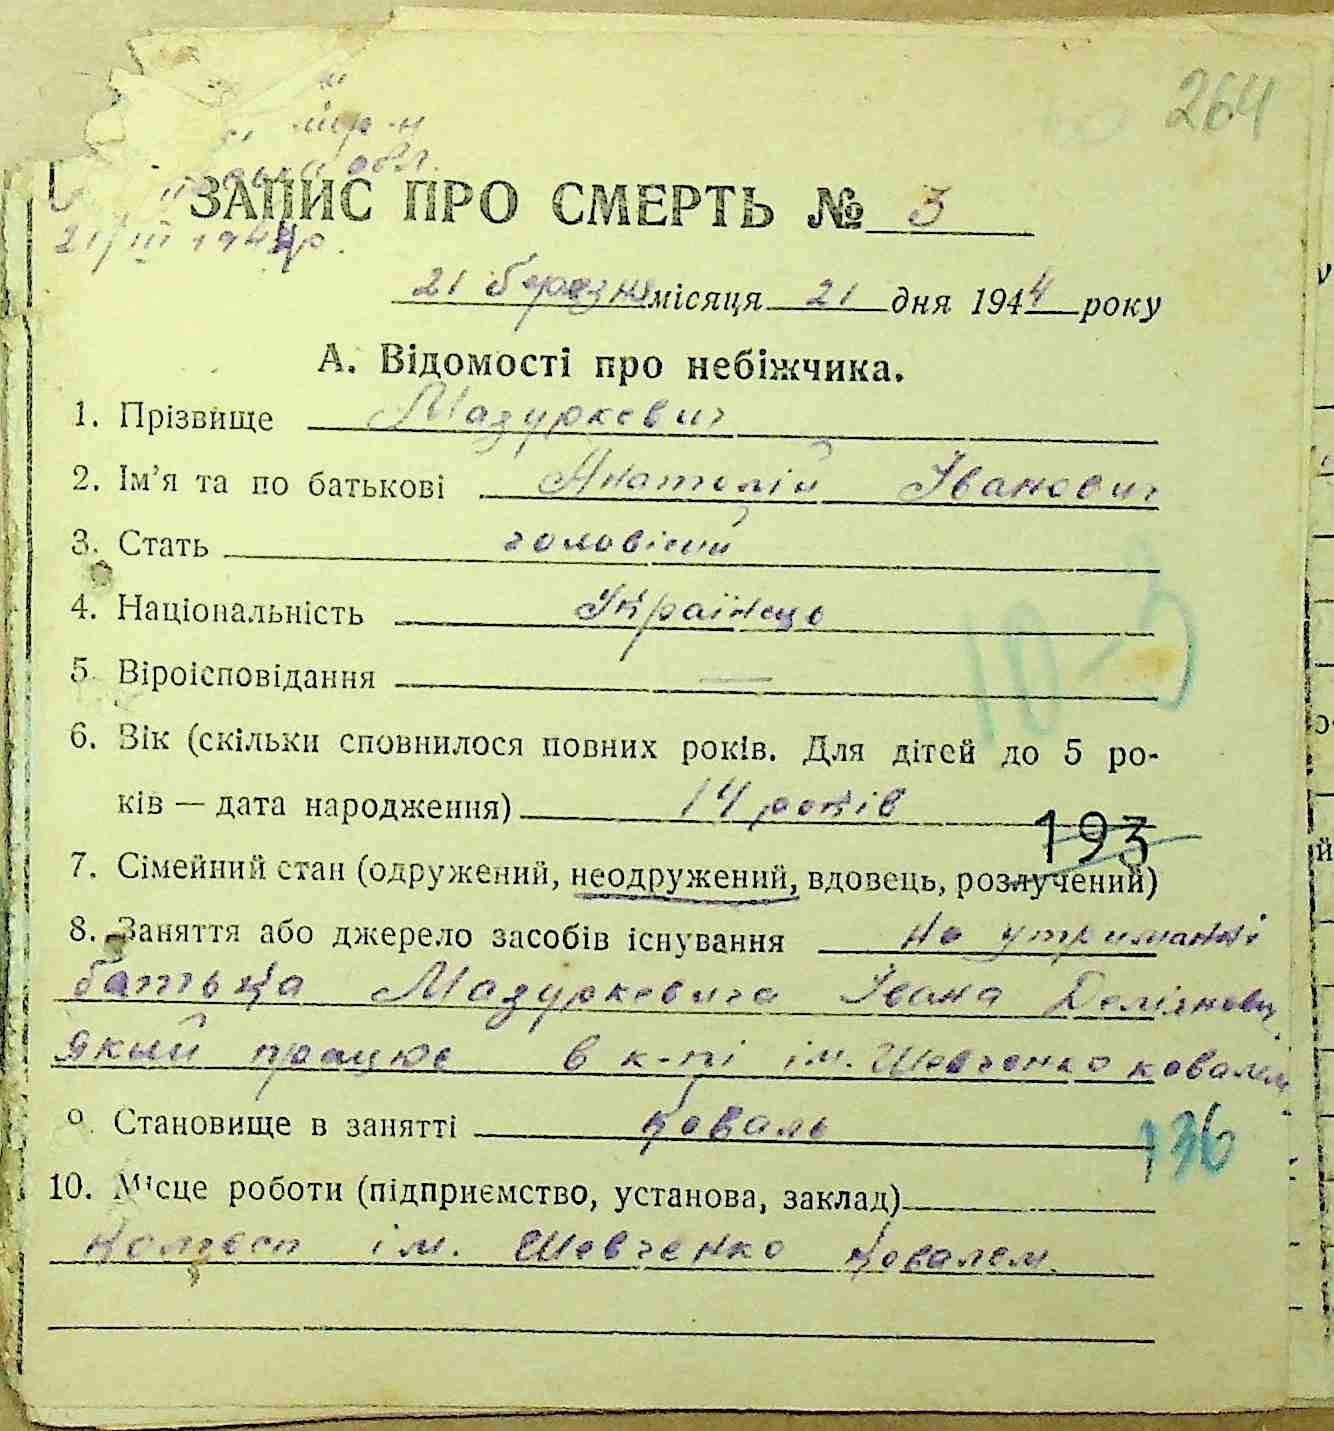 264
обл.
ЗАПИС ПРО СМЕРТЬ № 3
21/III 1944 р.
21 березня місяця 21 дня 1944 року
А. Відомості про небіжчика.
1. Прізвище Мазуркевич
2. Ім'я та по батькові Анатолій Іванович
3. Стать чоловічий
4. Національність Українець
5. Віроісповідання —
6. Вік (скільки сповнилося повних років. Для дітей до 5 ро-
ків — дата народження) 14 років
193
7. Сімейний стан (одружений, неодружений, вдовець, розлучений)
8. Заняття або джерело засобів існування на утриманні
батька Мазуркевича Івана
який працює в к-пі ім. Шевченко ковалем
9. Становище в занятті коваль
136
10. Місце роботи (підприємство, установа, заклад)
колгосп ім. Шевченко ковалем.